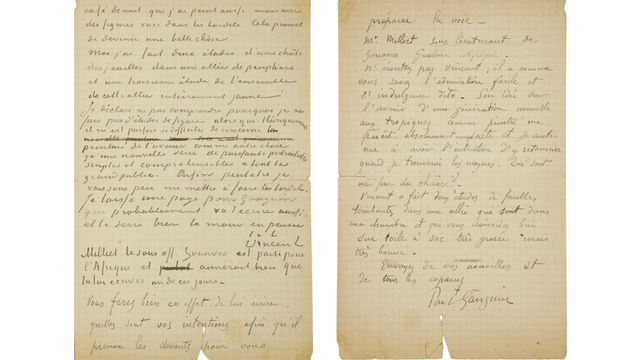 café de nuit que j'ai peint aussi mais avec
des figures vues dans les bordels. Cela promet
de devenir une belle chose.
Moi j'ai fait deux études d'une chute
des feuilles dans une allée de peupliers
et une troisième étude de l'ensemble
de cette allée entièrement jaune.
Je déclare ne pas comprendre pourquoi je ne
fais pas d'études de figure alors que théoriquement
il m'est parfois si difficile de concevoir la
peinture de l'avenir comme autre chose
qu'une nouvelle série de puissants portraitistes
simples et compréhensibles à tout le
grand public. Enfin peut-être je
vais sous peu me mettre à faire les bordels.
Je laisse une page pour Gauguin
que probablement va t'écrire aussi
et te serre bien la main en pensée
t. à t.
Vincent
Milliet le sous off. Zouaves est parti pour
l'Afrique et aimerait bien que
tu lui écrives un de ces jours.
Vous ferez bien en effet de lui écrire
quelles sont vos intentions afin qu'il
prenne les devants pour vous
préparer la voie —
Mr Milliet sous lieutenant de
Zouaves Guelma Afrique.
N'écoutez pas Vincent, il a comme
vous savez l'admiration facile et
l'indulgence dito. Son idée sur
l'avenir d'une génération nouvelle
aux tropiques comme peintre me
paraît absolument juste et je continue
à avoir l'intention d'y retourner
quand je trouverai les moyens. Qui sait
un peu de chance?
Vincent a fait deux études de feuilles
tombantes dans une allée qui sont dans
ma chambre et que vous aimeriez bien
sur toile à sac très grosse mais
très bonne.
Envoyez de vos nouvelles et
de tous les copains
Paul Gauguin